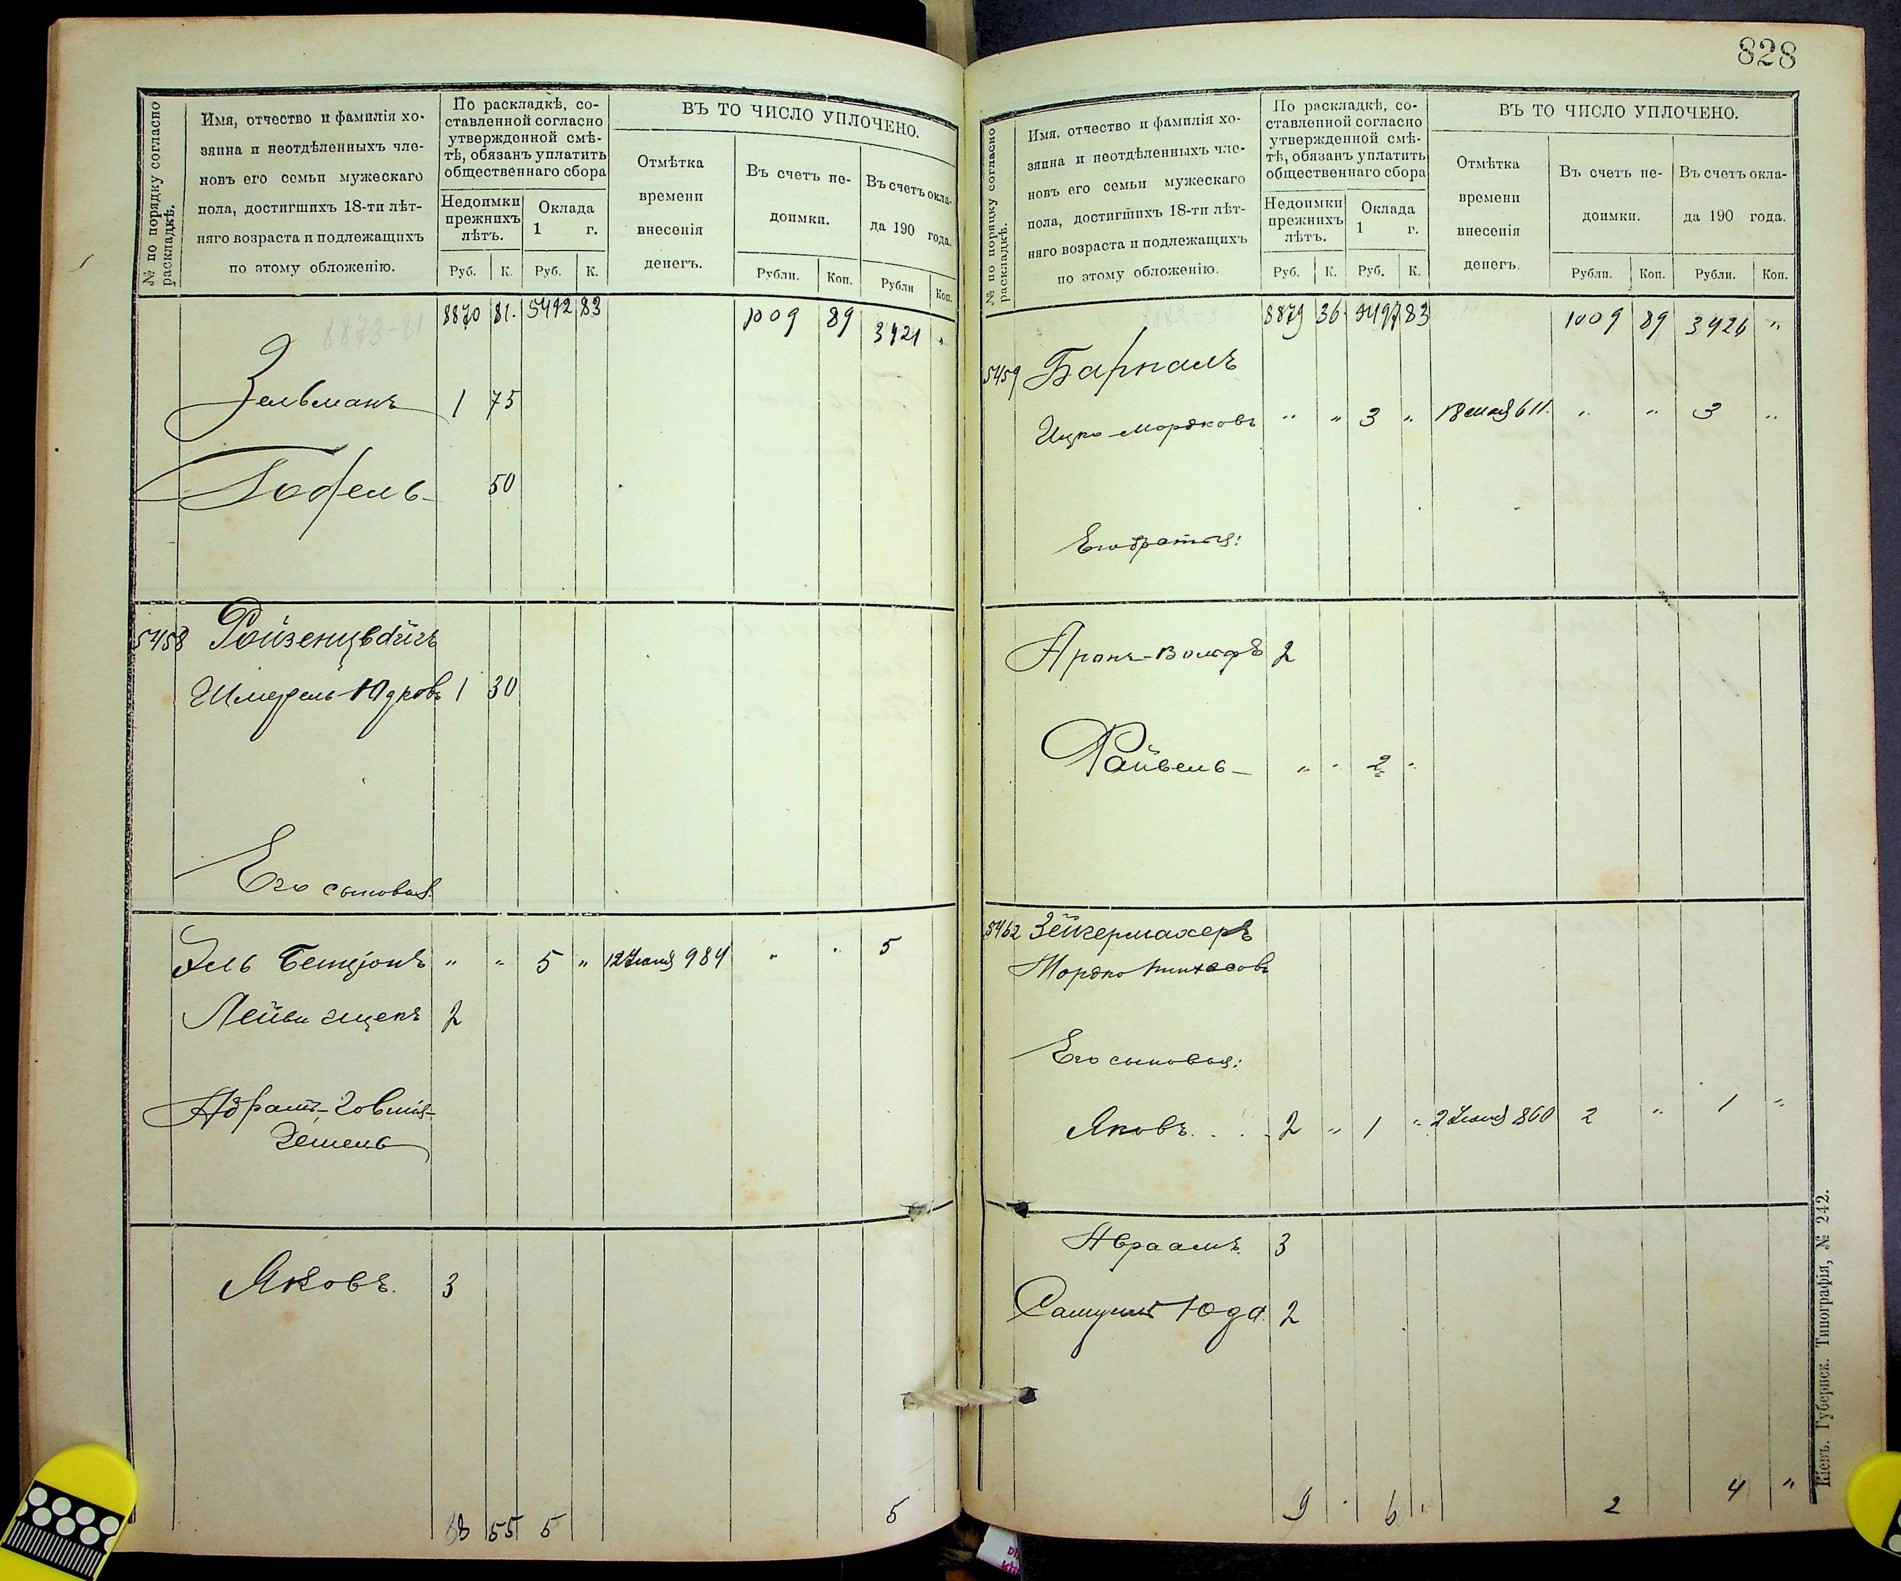 828
№ по порядку согласно раскладкѣ.
Имя, отчество и фамилія хо-
зяина и неотдѣленныхъ чле-
новъ его семьи мужескаго
пола, достигшихъ 18-ти лѣт-
няго возраста и подлежащихъ
по этому обложенію.
По раскладкѣ, со-
ставленной согласно
утвержденной смѣ-
тѣ, обязанъ уплатить
общественнаго сбора
Недоимки прежнихъ лѣтъ.
Оклада 1 г.
Руб. К. Руб. К.
ВЪ ТО ЧИСЛО УПЛОЧЕНО.
Отмѣтка
времени
внесенія
денегъ.
Въ счетъ не-
доимки.
Въ счетъ окла-
да 190 года.
Рубли. Коп. Рубли Коп.
8870 81. 5492 83 1009 89 3421 "
Зельманъ 1 75
50
5458 Ройзенцвайгъ
Юдковъ 1 30
Его сыновья
" " 5 " 12 984 " " 5
Лейви 2
Яковъ. 3
55 5 5
№ по порядку согласно раскладкѣ.
Имя, отчество и фамилія хо-
зяина и неотдѣленныхъ чле-
новъ его семьи мужескаго
пола, достигшихъ 18-ти лѣт-
няго возраста и подлежащихъ
по этому обложенію.
По раскладкѣ, со-
ставленной согласно
утвержденной смѣ-
тѣ, обязанъ уплатить
общественнаго сбора
Недоимки прежнихъ лѣтъ.
Оклада 1 г.
Руб. К. Руб. К.
ВЪ ТО ЧИСЛО УПЛОЧЕНО.
Отмѣтка
времени
внесенія
денегъ.
Въ счетъ не-
доимки.
Въ счетъ окла-
да 190 года.
Рубли. Коп. Рубли. Коп.
8879 36 5497 83 1009 89 3426 "
5459
Ицко-Мордковъ " " 3 " 18 мая 611. " " 3 "
Его братья:
Аронъ-Вольфъ 2
Файвель " " 2 "
5462 Зейгермахеръ
Мордко Пинхасовъ
Его сыновья:
Яковъ. 2 " 1 " 2 860 2 " 1 "
Авраамъ 3
Юда 2
9 6 2 4 "
Кіевъ. Губернск. Типографія, № 242.